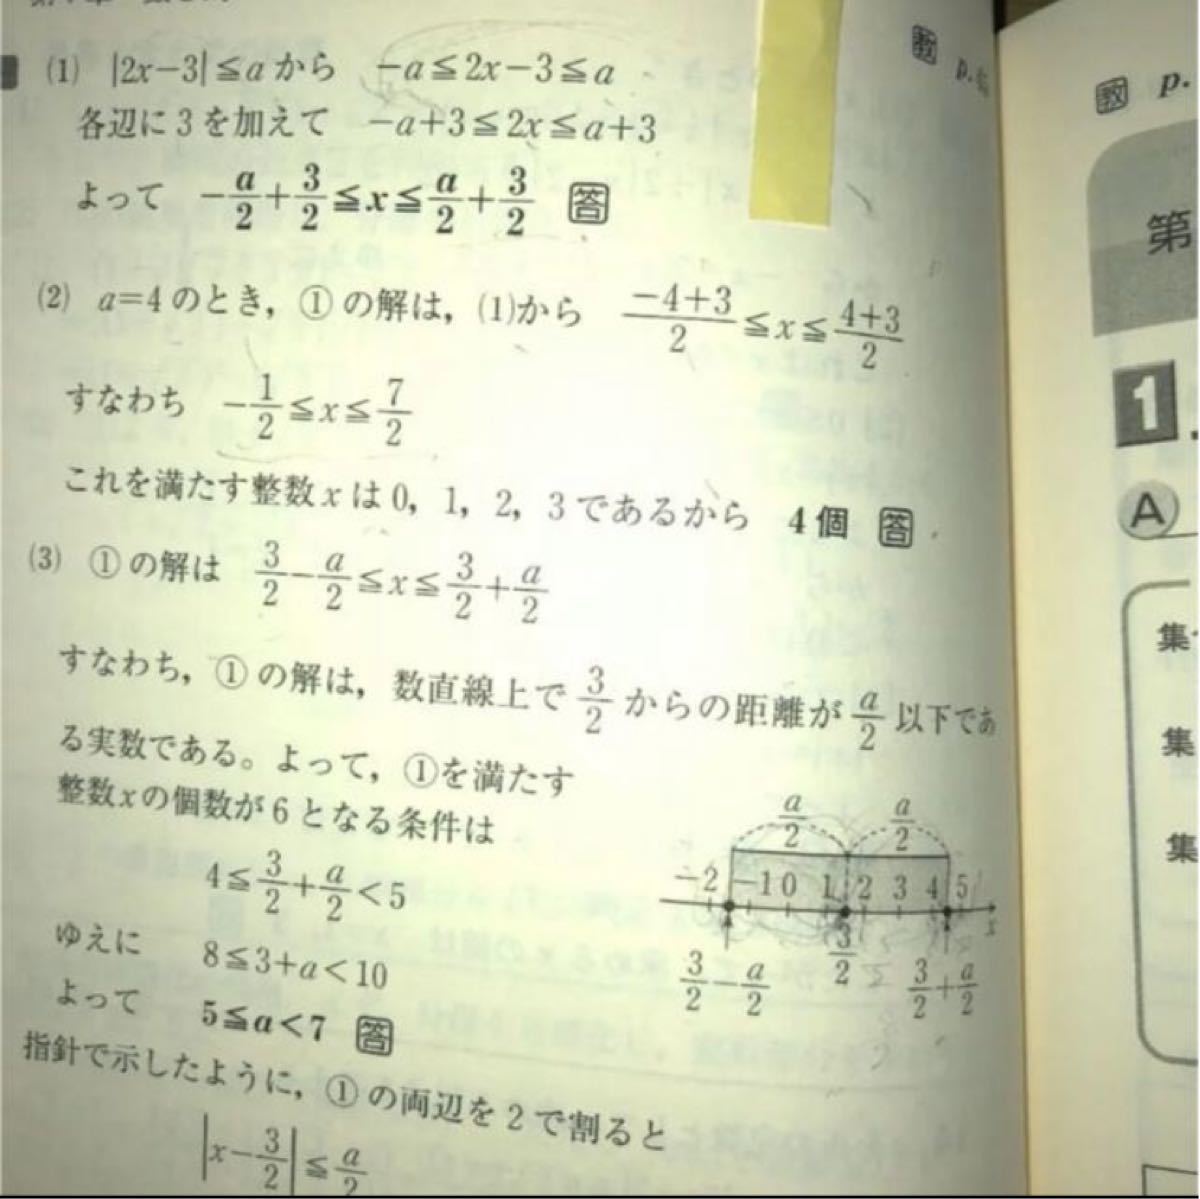 (1) |2x-3|≦aから -a≦2x-3≦a
各辺に3を加えて -a+3≦2x≦a+3
よって -a/2+3/2≦x≦a/2+3/2 答
(2) a=4のとき,①の解は,(1)から (-4+3)/2≦x≦(4+3)/2
すなわち -1/2≦x≦7/2
これを満たす整数xは0, 1, 2, 3であるから 4個 答
(3) ①の解は 3/2-a/2≦x≦3/2+a/2
すなわち,①の解は,数直線上で3/2からの距離がa/2以下であ
る実数である。よって,①を満たす
整数xの個数が6となる条件は
4≦3/2+a/2<5
ゆえに 8≦3+a<10
よって 5≦a<7 答
a/2 a/2
-2 -1 0 1 2 3 4 5
x
3/2-a/2 3/2 3/2+a/2
指針で示したように,①の両辺を2で割ると
|x-3/2|≦a/2
教 p.
教 p.
第
1
A
集
集
集